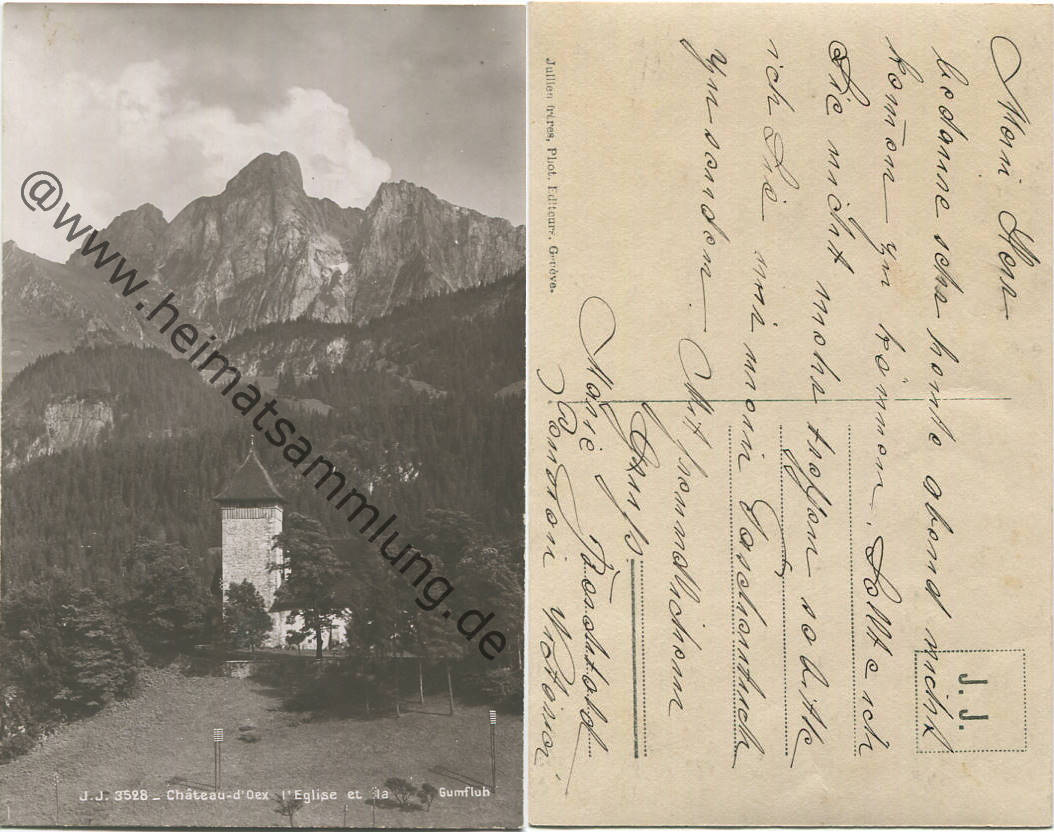 @www.heimatsammlung.de
J.J. 3528 _ Château-d'Oex l'Eglise et la Gumfluh
Mein Herr
bedaure sehr heute abend nicht
kom̄en zu können. Sollte ich
Sie nicht mehr treffen so bitte
ich Sie mir mein Taschentuch
zu senden. Mit freundlichem
Gruß
Marie
Pension Victoria
Jullien frères, Phot. Editeurs, Genève.
J. J.